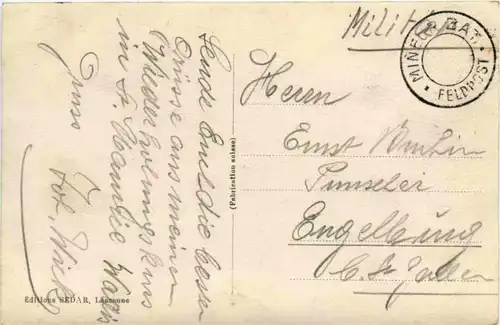 Sende Euch die besten
Grüsse aus meinem
Wiederholungskurs
in St Maurice Wallis
Gruss
Editions SEDAR, Lausanne
(Fabrication suisse)
Militär
MINEUR BAT. * FELDPOST *
Herrn
Ernst
Engelburg
C. St Gallen